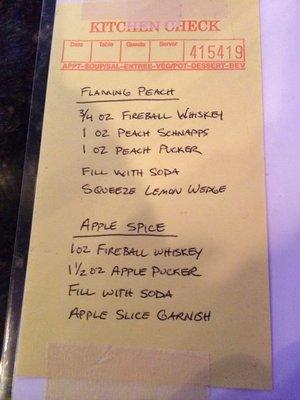 KITCHEN CHECK
Date Table Guests Server 415419
APPT-SOUP/SAL-ENTREE-VEG/POT-DESSERT-BEV
FLAMING PEACH
3/4 OZ FIREBALL WHISKEY
1 OZ PEACH SCHNAPPS
1 OZ PEACH PUCKER
FILL WITH SODA
SQUEEZE LEMON WEDGE
APPLE SPICE
1OZ FIREBALL WHISKEY
1 1/2 OZ APPLE PUCKER
FILL WITH SODA
APPLE SLICE GARNISH